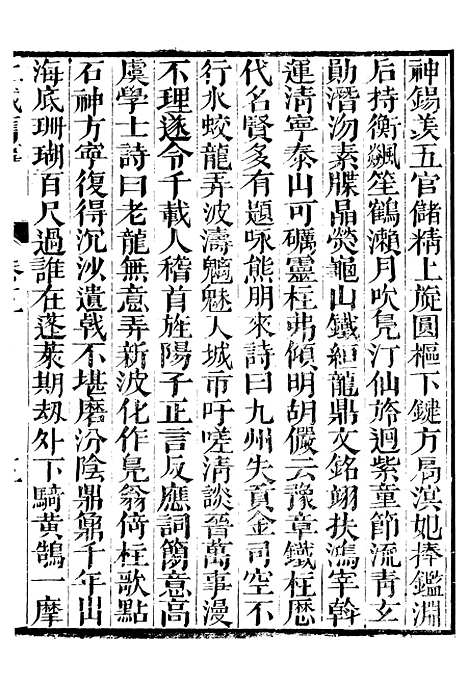 神錫羨五官儲精上旋圓樞下鍵方局溟妃捧鑑淵
后持衡飄笙鶴瀨月吹鳧汀仙旂迴紫童節流靑玄
勛潛沕素牒晶熒龜山鐵絙龍鼎文銘翊扶鴻宰斡
運淸寧泰山可礪靈柱弗傾明胡儼云豫章鐵柱歷
代名賢多有題咏熊朋來詩曰九州失貢金司空不
行水蛟龍弄波濤魑魅人城市吁嗟淸談晉萬事漫
不理遂令千載人稽首旌陽子正言反應詞簡意高
虞學士詩曰老龍無意弄新波化作鳧翁倚柱歌點
石神方寧復得沉沙遺戟不堪磨汾陰鼎鼐千年出
海底珊瑚百尺過誰在蓬萊期刼外下騎黃鵠一摩